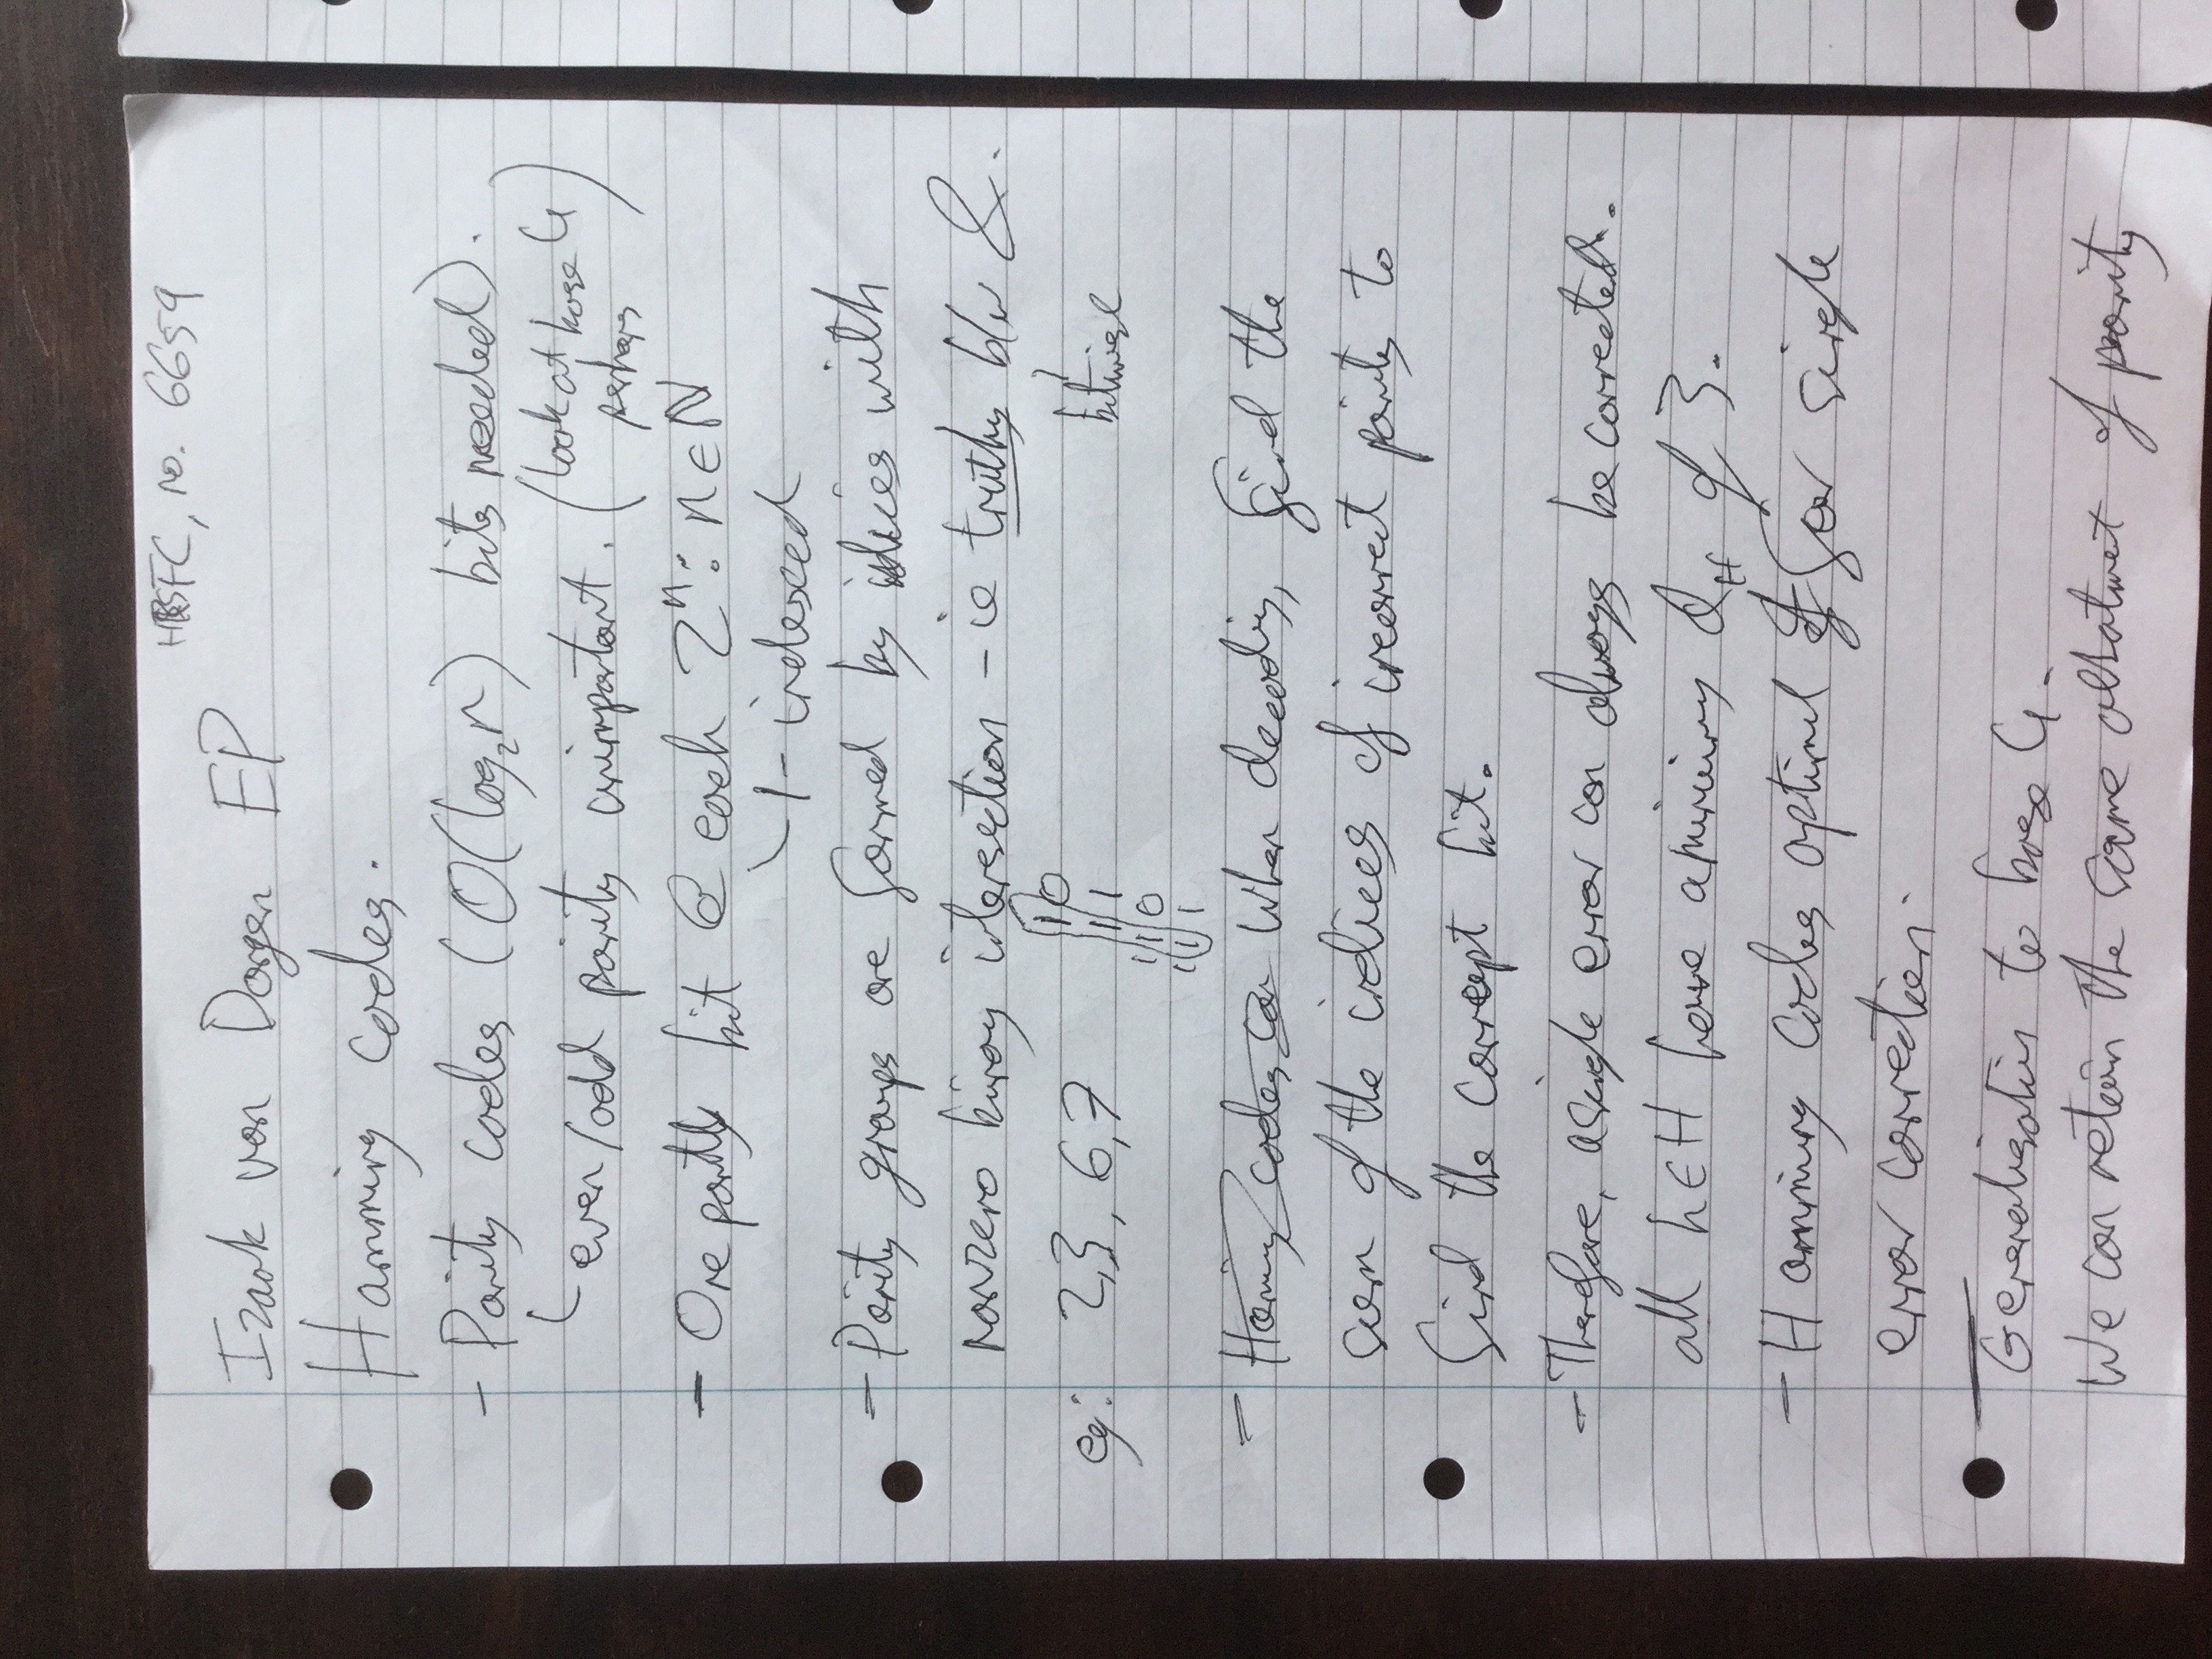 HRSFC, no. 6659
Izaak van Dongen EP
Hamming codes.
- Parity codes (O(log₂n) bits needed).
even/odd parity unimportant. (look at base 4 perhaps)
- One parity bit @ each 2ⁿ: n∈ℕ
1-indexed
- Parity groups are formed by indices with
nonzero binary intersection - ie truthy b/w &.
bitwise
eg: 2,3, 6,7
10
11
110
111
- Haming codes can When decoding, find the
sum of the indices of incorrect parity to
find the corrupt bit.
- Therefore, a single error can always be corrected.
all h∈H have a minimum d_H of 3.
- Hamming codes optimal for single
error correction.
Generalisation to base 4.
We can retain the same allotment of parity